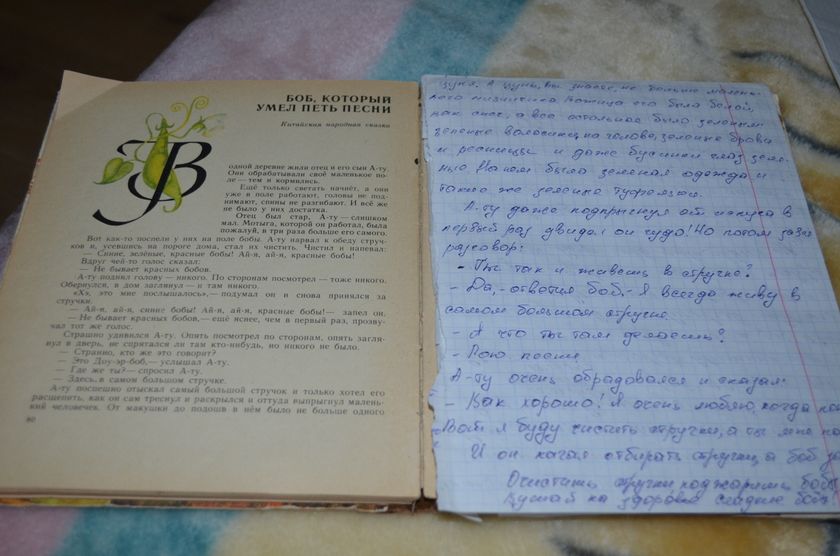 БОБ, КОТОРЫЙ
УМЕЛ ПЕТЬ ПЕСНИ
Китайская народная сказка
В
одной деревне жили отец и его сын А-ту.
Они обрабатывали своё маленькое по-
ле — тем и кормились.
Ещё только светать начнёт, а они
уже в поле работают, головы не под-
нимают, спины не разгибают. И всё же
не было у них достатка.
Отец был стар, А-ту — слишком
мал. Мотыга, которой он работал, была,
пожалуй, в три раза больше его самого.
Вот как-то поспели у них на поле бобы. А-ту нарвал к обеду струч-
ков и, усевшись на пороге дома, стал их чистить. Чистил и напевал:
— Синие, зелёные, красные бобы! Ай-я, ай-я, красные бобы!
Вдруг чей-то голос сказал:
— Не бывает красных бобов.
А-ту поднял голову — никого. По сторонам посмотрел — тоже никого.
Обернулся, в дом заглянул — и там никого.
«Хэ, это мне послышалось», — подумал он и снова принялся за
стручки.
— Ай-я, ай-я, синие бобы! Ай-я, ай-я, красные бобы! — запел он.
— Не бывает красных бобов, — ещё яснее, чем в первый раз, прозву-
чал тот же голос.
Страшно удивился А-ту. Опять посмотрел по сторонам, опять загля-
нул в дверь, не спрятался ли там кто-нибудь, но никого не было.
— Странно, кто же это говорит?
— Это Доу-эр-боб, — услышал А-ту.
— Где же ты? — спросил А-ту.
— Здесь, в самом большом стручке.
А-ту поспешно отыскал самый большой стручок и только хотел его
расщепить, как он сам треснул и раскрылся и оттуда выпрыгнул малень-
кий человечек. От макушки до подошв в нём было не больше одного
80
цуня. А цунь, вы знаете, не больше мален-
кого мизинчика. Кожица его была белой,
как снег, а все остальное было зеленым
зеленые волосики на голове, зеленые брови
и ресницы и даже бусинки глаз зеле-
ные. На нем была зеленая одежда и
такие же зеленые туфельки.
А-ту даже подпрыгнул от испуга в
первый раз увидал он чудо! Но потом завел
разговор:
- Ты так и живешь в стручке?
- Да, - ответил боб, - Я всегда живу в
самом большом стручке.
- А что ты там делаешь?
- Пою песни
А-ту очень обрадовался и сказал:
- Как хорошо! Я очень люблю, когда
Вот я буду чистить стручки, а ты мне
И он начал отбирать стручки, а боб
Очистить стручки поджарить бобы
Кушай на здоровье сладкие бобы